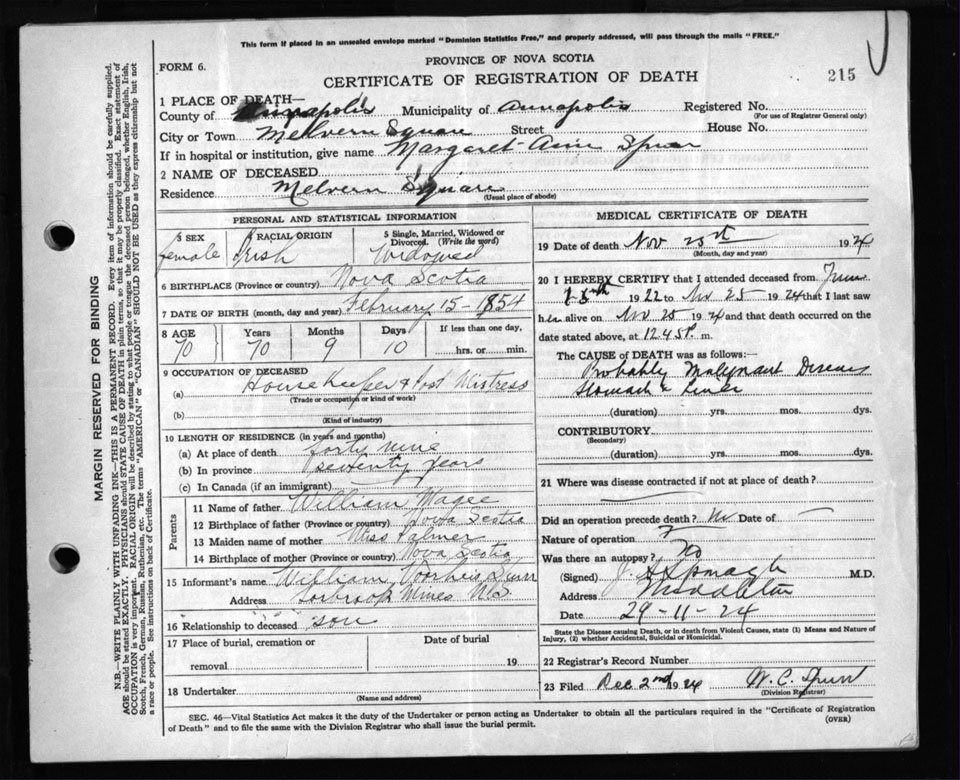 This form if placed in an unsealed envelope marked "Dominion Statistics Free," and property addressed, will pass through the mails "FREE."
FORM 6.
PROVINCE OF NOVA SCOTIA
CERTIFICATE OF REGISTRATION OF DEATH
215
1 PLACE OF DEATH—
County of Annapolis Municipality of Annapolis Registered No.
(For use of Registrar General only)
City or Town Melvern Square Street House No.
If in hospital or institution, give name Margaret Ann Spurr
2 NAME OF DECEASED
Residence Melvern Square
(Usual place of abode)
PERSONAL AND STATISTICAL INFORMATION
3 SEX 4 RACIAL ORIGIN 5 Single, Married, Widowed or Divorced. (Write the word)
female Irish Widowed
6 BIRTHPLACE (Province or country) Nova Scotia
7 DATE OF BIRTH (month, day and year) February 15 - 1854
8 AGE Years Months Days If less than one day,
70 70 9 10 hrs. or min.
9 OCCUPATION OF DECEASED
(a) House Keeper & Post Mistress
(Trade or occupation or kind of work)
(b)
(Kind of industry)
10 LENGTH OF RESIDENCE (in years and months)
(a) At place of death forty nine
(b) In province seventy years
(c) In Canada (if an immigrant)
Parents
11 Name of father William Magee
12 Birthplace of father (Province or country) Nova Scotia
13 Maiden name of mother Miss Palmer
14 Birthplace of mother (Province or country) Nova Scotia
15 Informant's name William Voorheis Spurr
Address Torbrook Mines NS
16 Relationship to deceased son
17 Place of burial, cremation or removal Date of burial 19
18 Undertaker
(Name and address)
MEDICAL CERTIFICATE OF DEATH
19 Date of death Nov 25th 1924
(Month, day and year)
20 I HEREBY CERTIFY that I attended deceased from June
1922 to Nov 25 1924 that I last saw
her alive on Nov 25 1924 and that death occurred on the
date stated above, at 12.45 P. m.
The CAUSE of DEATH was as follows:
Probably Malignant Disease
Stomach & Liver
(duration) yrs. mos. dys.
CONTRIBUTORY
(Secondary)
(duration) yrs. mos. dys.
21 Where was disease contracted if not at place of death?
Did an operation precede death? No Date of
Nature of operation
Was there an autopsy? No
(Signed) M.D.
Address Middleton
Date 29-11-24
State the Disease causing Death, or in death from Violent Causes, state (1) Means and Nature of
Injury, (2) whether Accidental, Suicidal or Homicidal.
22 Registrar's Record Number
23 Filed Dec 2nd 1924 W. C. Spurr
(Division Registrar)
SEC. 46—Vital Statistics Act makes it the duty of the Undertaker or person acting as Undertaker to obtain all the particulars required in the "Certificate of Registration
of Death" and to file the same with the Division Registrar who shall issue the burial permit.
(OVER)
MARGIN RESERVED FOR BINDING
N.B.—WRITE PLAINLY WITH UNFADING INK—THIS IS A PERMANENT RECORD. Every item of information should be carefully supplied.
AGE should be stated EXACTLY. PHYSICIANS should STATE CAUSE OF DEATH in plain terms, so that it may be properly classified. Exact statement of
OCCUPATION is very important. RACIAL ORIGIN will be described by stating to what people or tongue the deceased person belonged, whether English, Irish,
Scotch, French, German, Russian, Ruthenian, etc. The terms "AMERICAN" or "CANADIAN" SHOULD NOT BE USED as they express citizenship but not
a race or people. See instructions on back of Certificate.